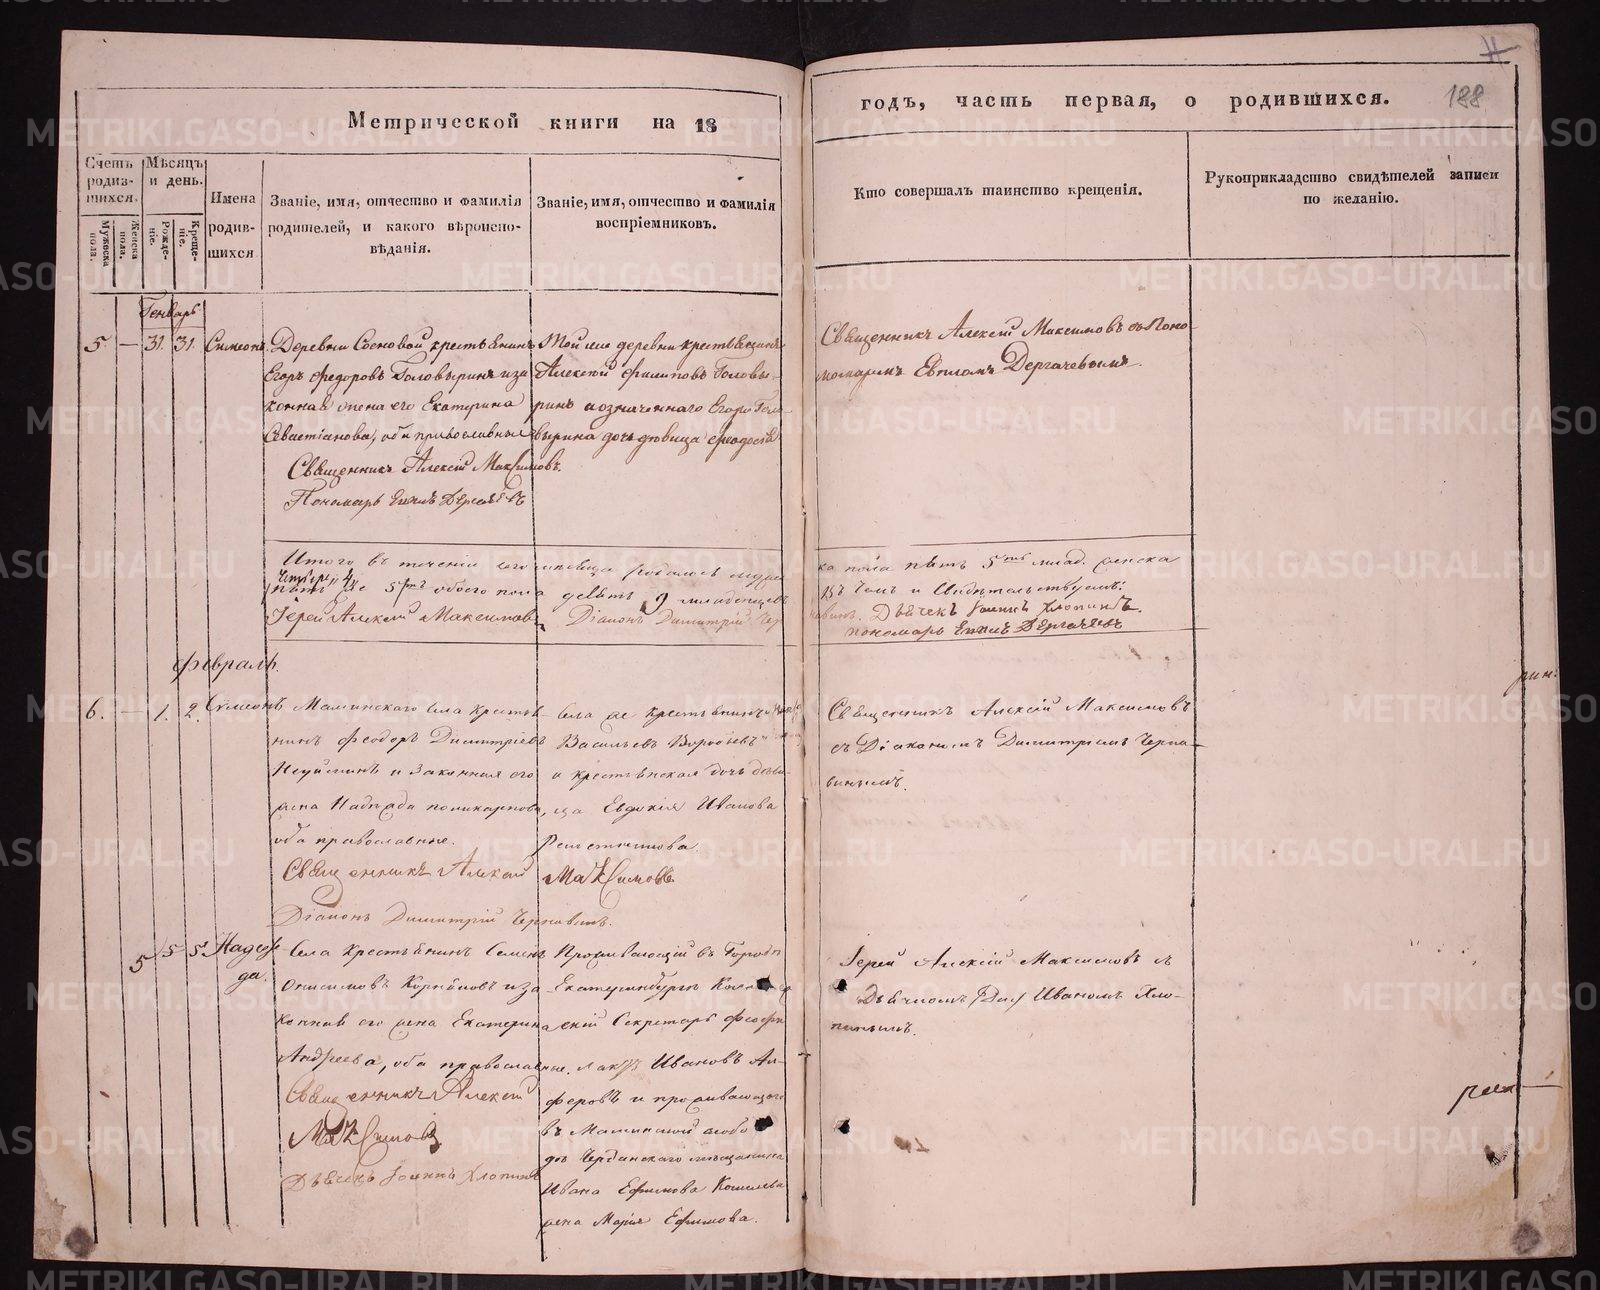 Метрической книги на 18
годъ, часть первая, о родившихся.
188
Счетъ родив-
шихся.
Мужеска пола.
Женска пола.
Мѣсяцъ и день.
Рожде-
ніе.
Креще-
ніе.
Имена
родив-
шихся
Званіе, имя, отчество и фамилія
родителей, и какого вѣроиспо-
вѣданія.
Званіе, имя, отчество и фамилія
воспріемниковъ.
Кто совершалъ таинство крещенія.
Рукоприкладство свидѣтелей записи
по желанію.
Генварь
5 — 31. 31. Симеонъ
Деревни Сосновой крестьянинъ
Егоръ Федоровъ Головыринъ и за
конная жена его Екатерина
Севастіанова, оба православныя
Священникъ Алексій Максимовъ.
Пономарь Дергачевъ
Той же деревни крестьянинъ
Алексій Филиповъ Головы-
ринъ и означеннаго Егора Голо-
вырина дочь дѣвица Феодосія
Священникъ Алексій Максимовъ съ Поно-
маремъ Дергачевымъ
Итого въ теченіи сего мѣсяца родилось муже
ска пола пять 5ть млад. женска
четыре 4, обоего пола девять 9 младенцевъ
въ чемъ и свидѣтельствуемъ:
Іерей Алексій Максимовъ
Діаконъ Димитрій Чер
навинъ. Дьячекъ Іоаннъ Хлопинъ.
пономарь Дергачевъ
Февраль.
6. — 1. 2. Сумеонъ
Маминскаго села крестья-
нинъ Феодоръ Димитріевъ
Неуйминъ и законная его
жена Надежда Поликарпова,
оба православные.
Священникъ Алексій Максимовъ
Діаконъ Димитрій Чернавинъ.
села же крестьянинъ
Васильевъ Воробьевъ
и крестьянская дочь дѣви-
ца Евдокія Иванова
Решетникова.
Священникъ Алексій Максимовъ
съ Діакономъ Димитріемъ Черна-
винымъ.
5 5 5 Надеж
да.
села крестьянинъ Семенъ
Онисимовъ и за
конная его жена Екатерина
Андреева, оба православные.
Священникъ Алексій
Максимовъ
Дьячекъ Іоаннъ Хлопинъ
Проживающій въ Городѣ
Екатеринбургѣ
скій Секретарь Феофи
лактъ Ивановъ Ал-
феровъ и проживающаго
въ Маминской слобо
дѣ Чердынскаго мѣщанина
Ивана Ефимова
жена Марія Ефимова.
Іерей Алексій Максимовъ съ
Дьячкомъ Иваномъ Хло-
пинымъ.
рин.